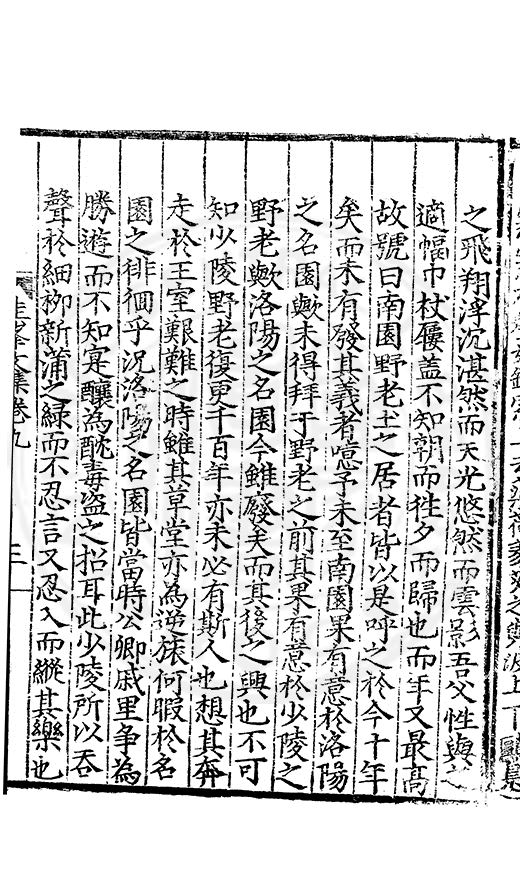 之飛翔浮沉湛然而天光悠然而雲影吾父性與之
適幅巾杖屨盖不知朝而徃夕而歸也而年又最高
故號曰南園野老土之居者皆以是呼之於今十年
矣而未有發其義者噫予未至南園果有意於洛陽
之名園歟未得拜于野老之前其果有意於少陵之
野老歟洛陽之名園今雖廢矣而其後之興也不可
知少陵野老復更千百年亦未必有斯人也想其奔
走於王室艱難之時雖其草堂亦為逆旅何暇於名
園之徘徊乎況洛陽之名園皆當時公卿戚里争為
勝遊而不知寔釀為酖毒盗之招耳此少陵所以吞
聲於細栁新蒲之緑而不忍言又忍入而縱其樂也
圭峯文集卷九
三